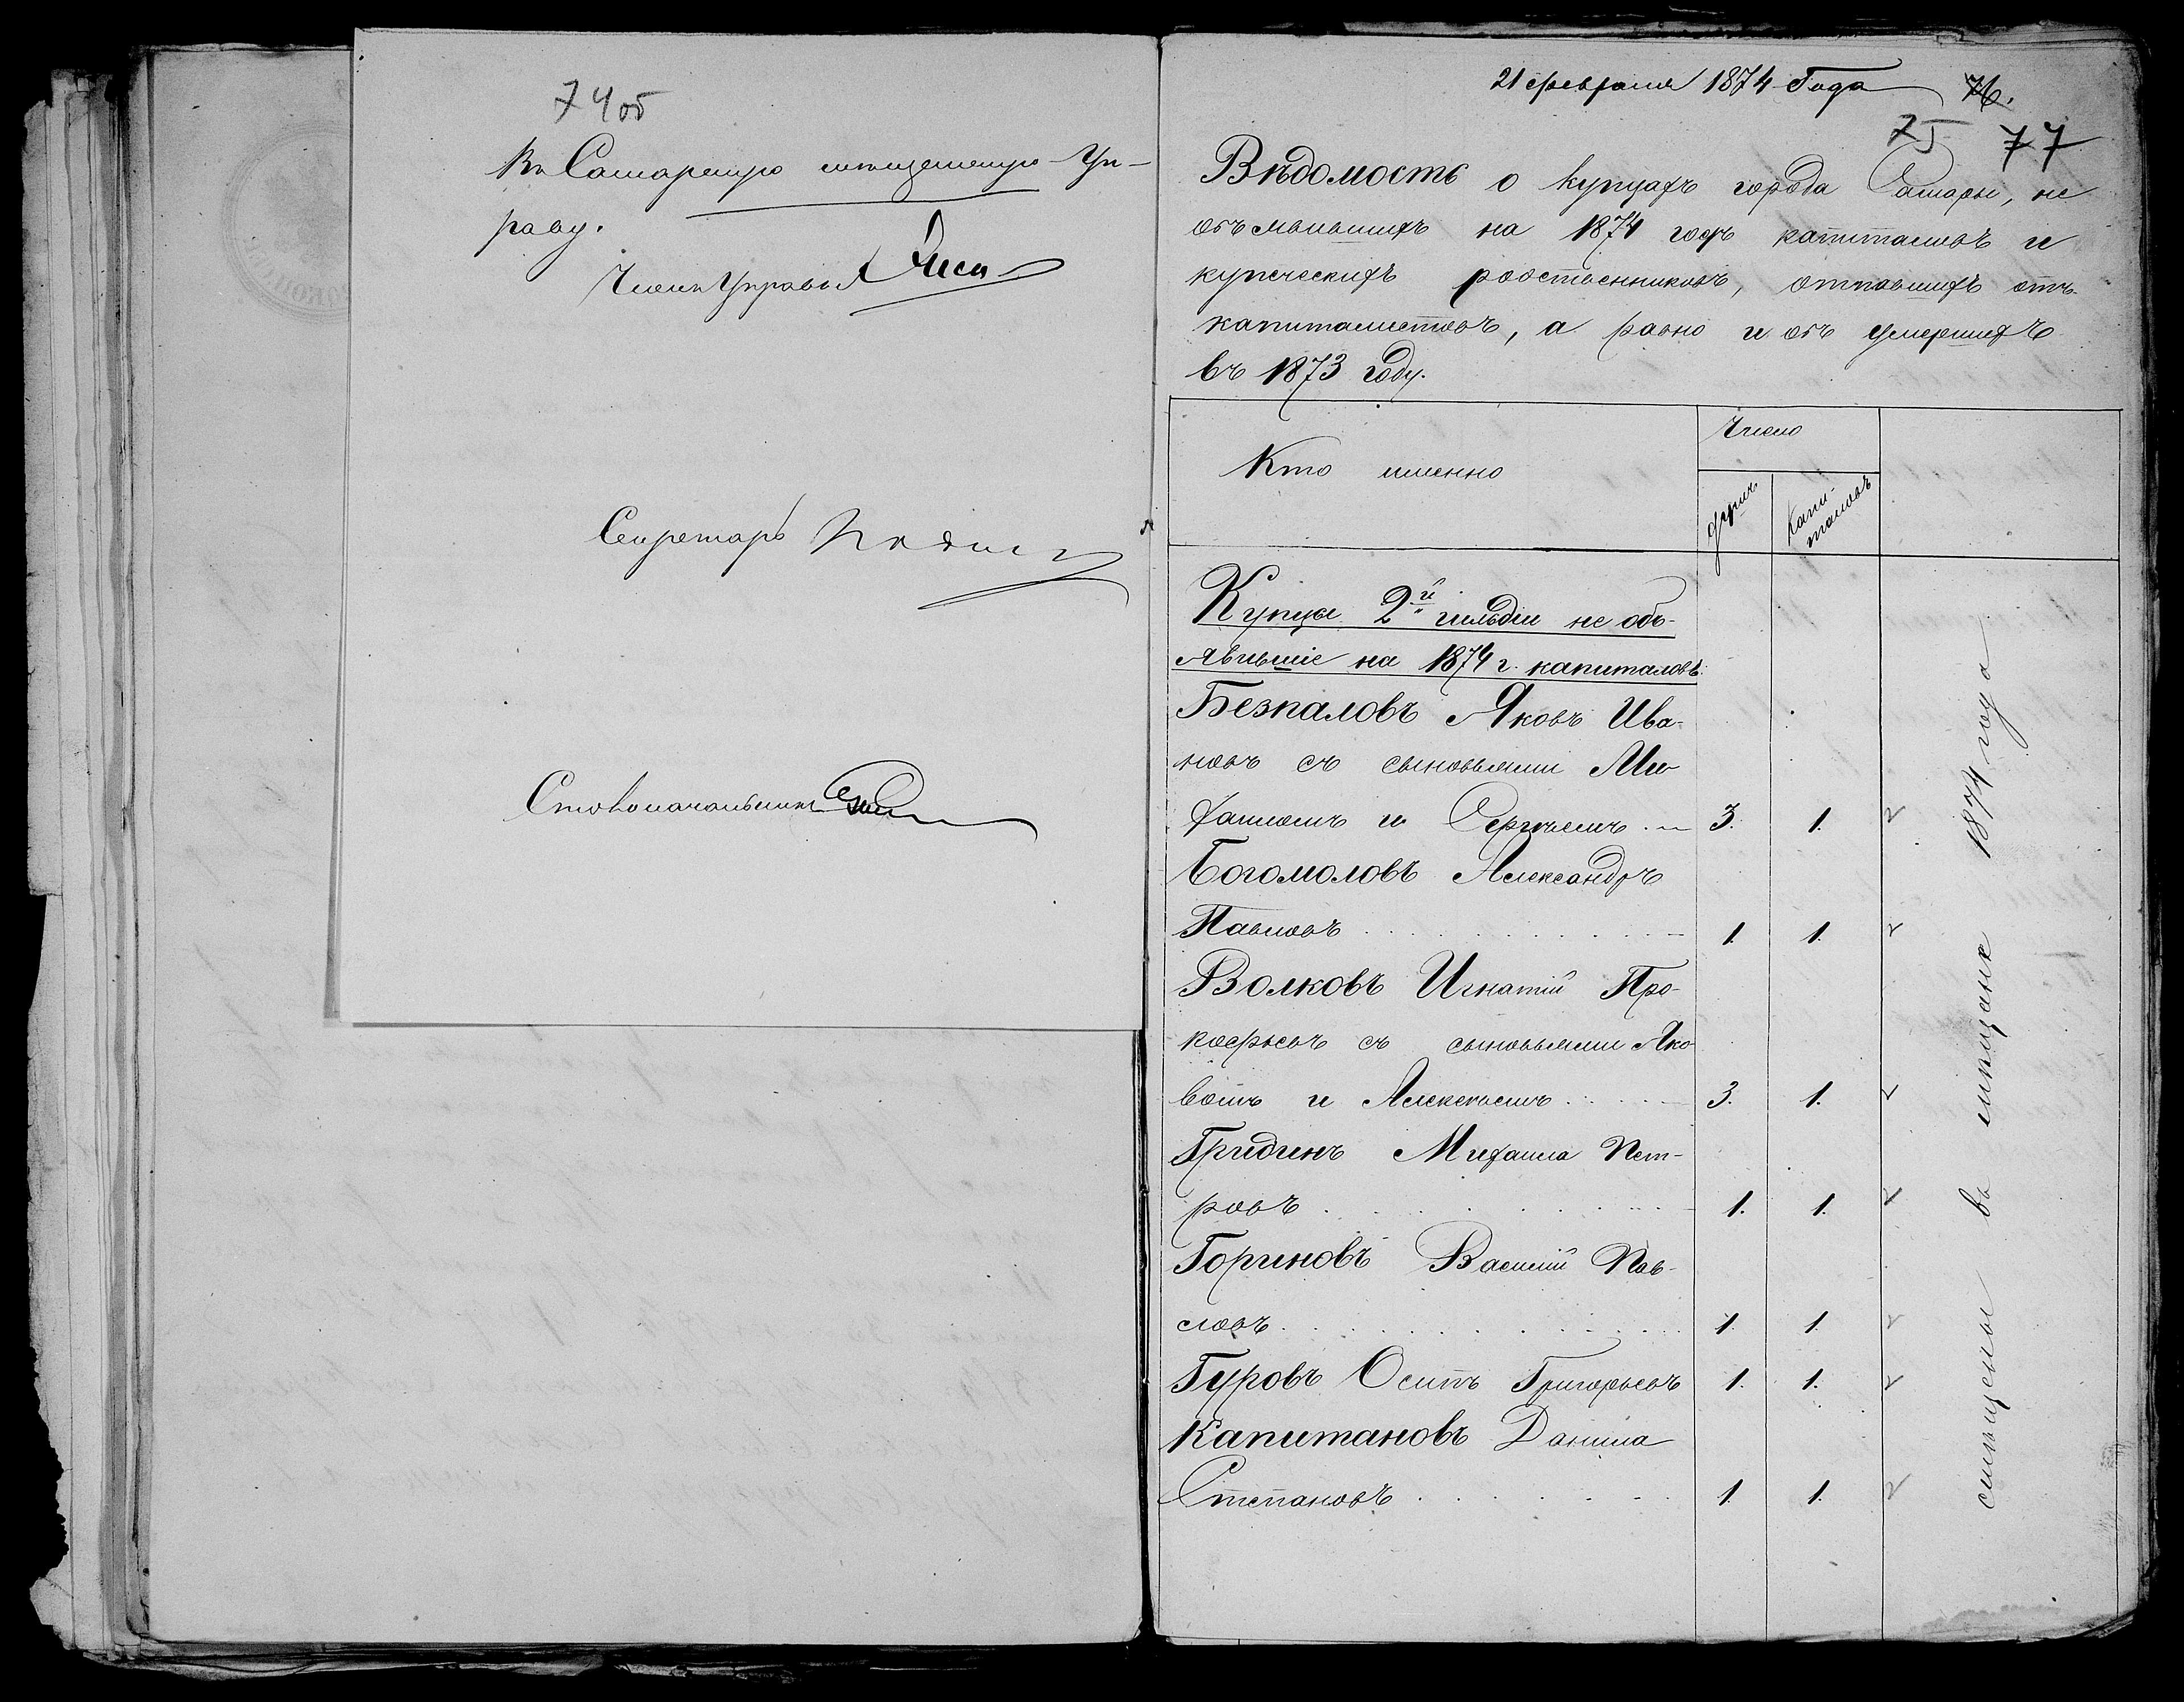 74об
Въ Самарскую мѣщанскую Уп-
раву.
Членъ Управы
Секретарь
Столоначальникъ
21 февраля 1874 Года 76.
75 77
Вѣдомость о купцахъ города Самары, не
объявившихъ на 1874 годъ капиталовъ и
купеческихъ родственникахъ, отпавшихъ отъ
капиталистовъ, а равно и объ умершихъ
въ 1873 году.
Кто именно
Число
душъ
Капи-
таловъ
Купцы 2й гильдіи не объ-
явившіе на 1874 г. капиталовъ:
Безпаловъ Яковъ Ива-
новъ съ сыновьями Ми-
хаиломъ и Сергѣемъ 3. 1.
Богомоловъ Александръ
Павловъ 1. 1.
Волковъ Игнатій Про-
кофьевъ съ сыновьями Яко-
вомъ и Алексѣемъ 3. 1.
Гридинъ Михаила Пет-
ровъ 1. 1.
Гориновъ Василій Пав-
ловъ 1. 1.
Гуровъ Осипъ Григорьевъ 1. 1.
Капитановъ Данила
Степановъ 1. 1.
въ мѣщане 1874 года